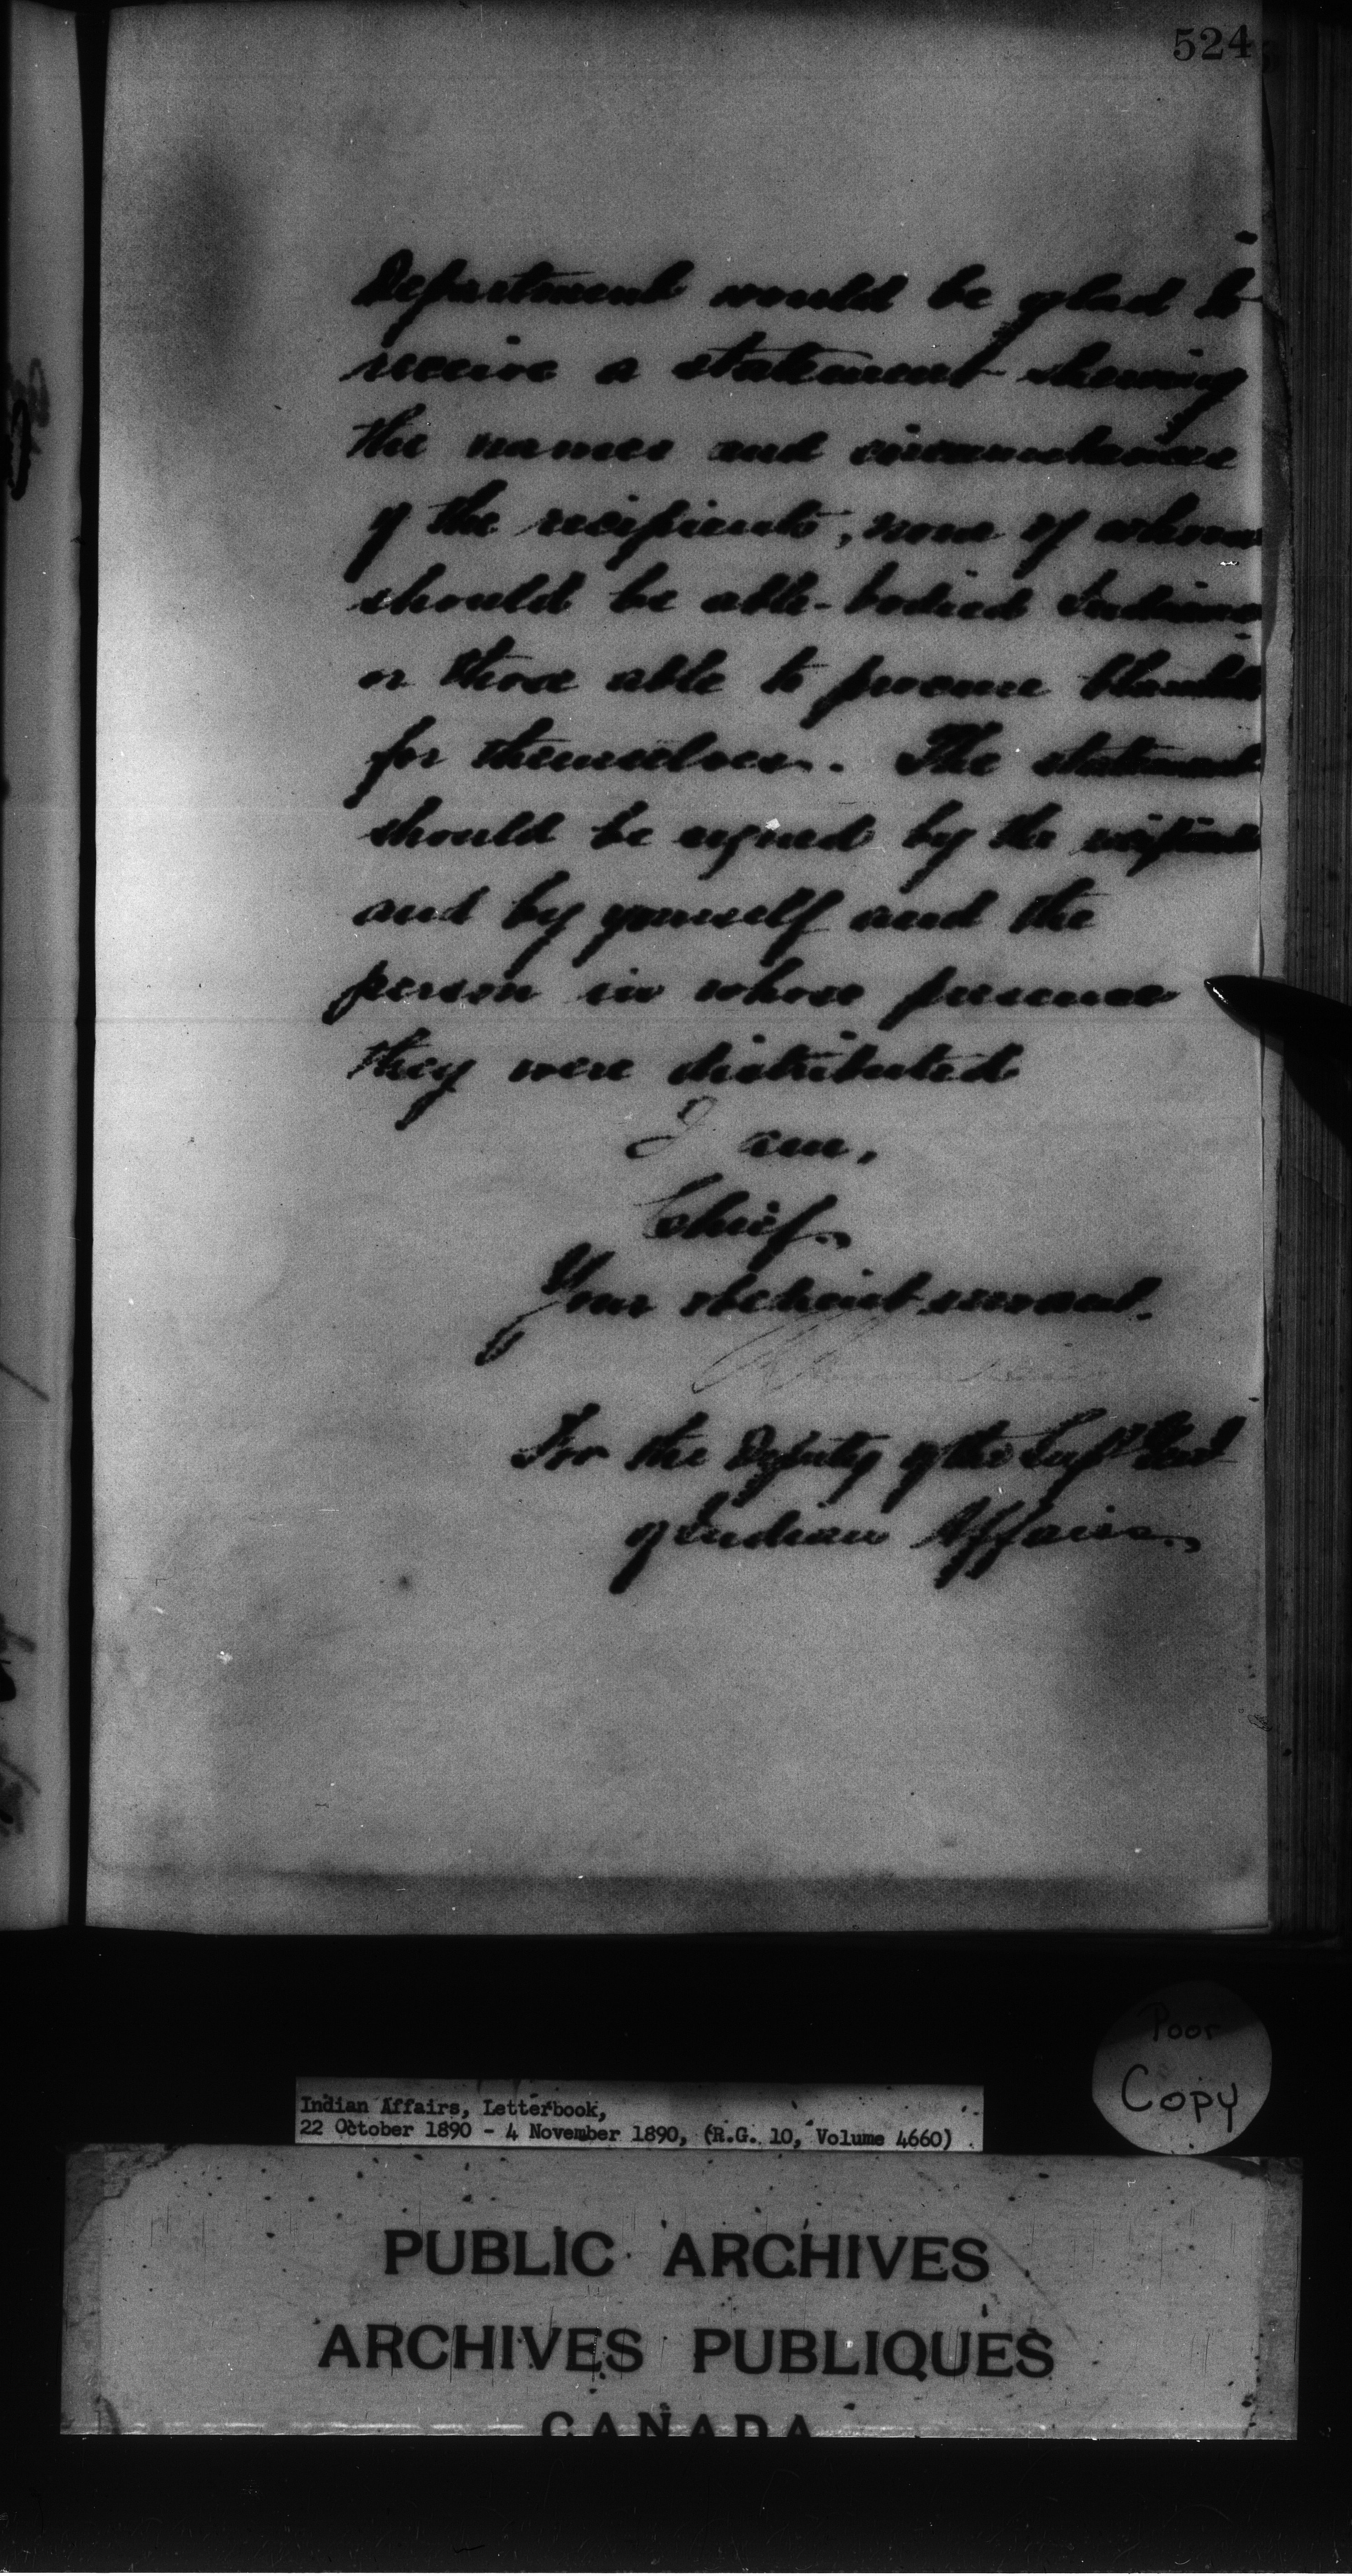 524
Department would be glad to
receive a statement shewing
the names and circumstances
of the recipients, none of whom
should be able-bodied Indians
or those able to procure blankets
for themselves. The statement
should be signed by the recipients
and by yourself and the
person in whose presence
they were distributed
I am,
Chief,
Your obedient servant.
For the Deputy of the Supt Genl
of Indian Affairs.
Poor
Copy
Indian Affairs, Letterbook,
22 October 1890 - 4 November 1890, (R.G. 10, Volume 4660)
PUBLIC ARCHIVES
ARCHIVES PUBLIQUES
CANADA